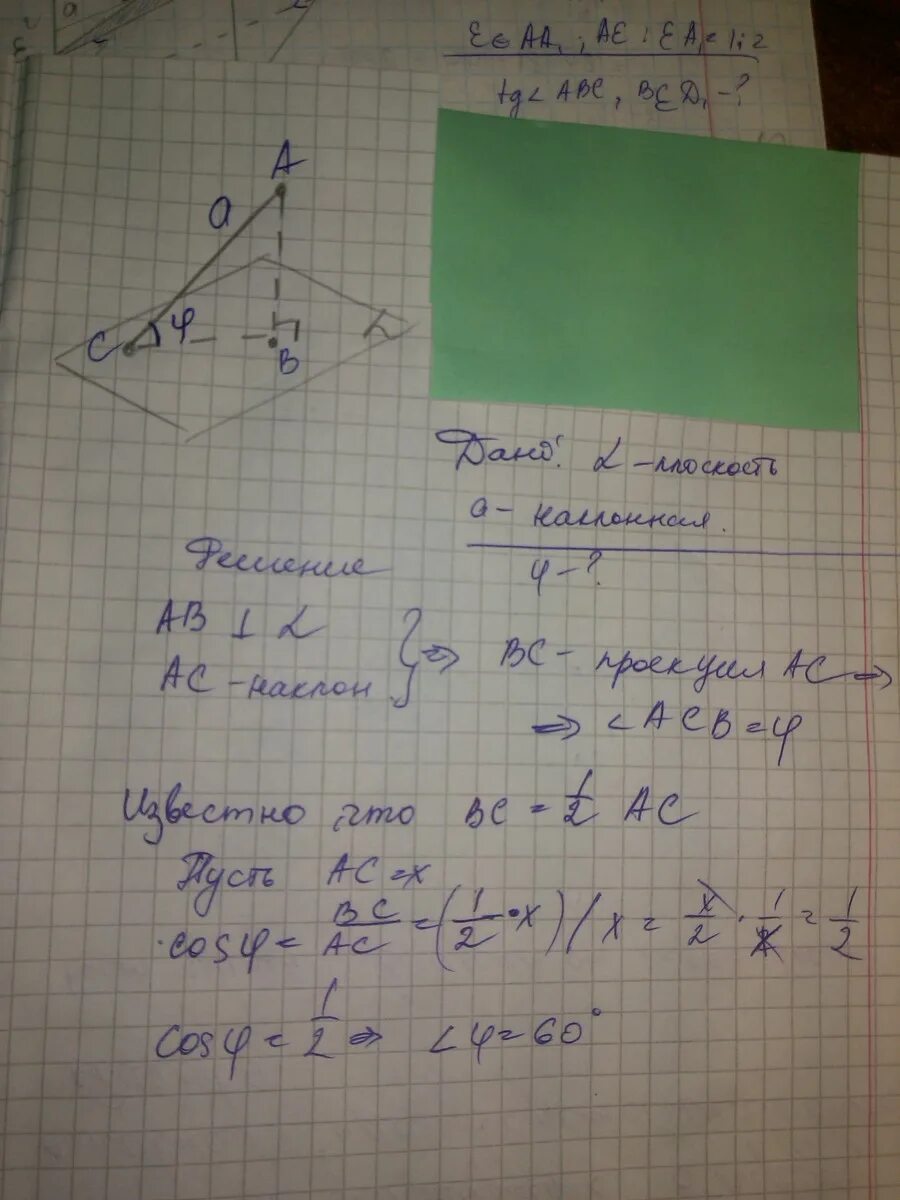 E ∈ AA₁ ; AE : EA₁ = 1 : 2
tg < ABC, BED₁ - ?
A
a
C φ B α
Дано: α - плоскость
a - наклонная.
φ - ?
Решение
AB ⊥ α
AC - наклон } ⇒ BC - проекция AC ⇒
⇒ < ACB = φ
Известно, что BC = 1/2 AC
Пусть AC = x
cos φ = BC/AC = (1/2 · x) / x = x/2 · 1/x = 1/2
cos φ = 1/2 ⇒ < φ = 60°